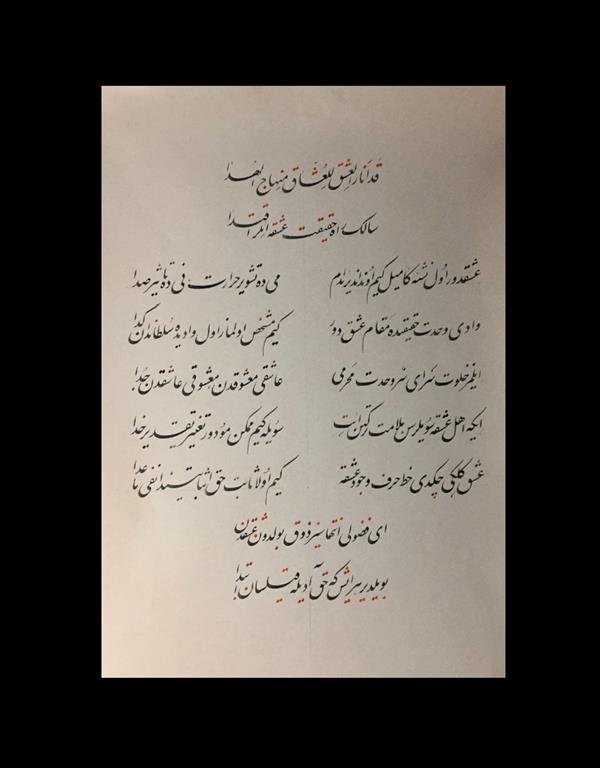 قَد اَنارَ العِشق لِلعُشّاق مِنهاج الهُدا
سالک راه حقیقت عشقه ایلر اقتدا
عشقدور اول نشئه کامیل کیم اوندندیر مدام
می ده تشویر حرارت، نی ده تاثیر صدا
وادی وحدت حقیقتده مقام عشق دور
کیم مشخص اولماز اول وادیده سلطاندن گدا
ایلمز خلوت سرای سر وحدت محرمی
عاشقی معشوقدن معشوقی عاشقدن جدا
ایکه اهل عشقه سویلرسن ملامت ترکین ائت
سویله کیم ممکن مودور تغییر تقدیر خدا
عشق کلکی چکدی خط حرف وجود عشقه
کیم اولا ثابت حق اثباتیندا نفی ماعدا
ای فضولی انتهاسیز ذوق بولدون عشقدن
بویله دیر هر ایش که حق آدیله قیلسان ابتدا